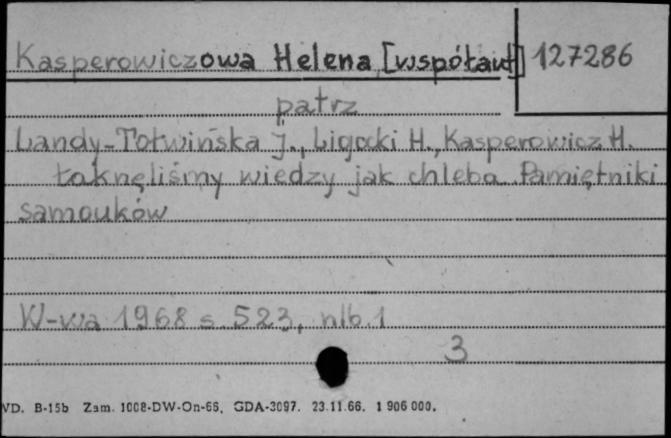 Kasperowiczowa Helena [współaut] 127286
patrz
Landy-Tołwińska J., Ligocki H., Kasperowicz H.
Łaknęliśmy wiedzy jak chleba. Pamiętniki
samouków
W-wa 1968 s. 523, nlb. 1
3
VD. B-15b Zam. 1008-DW-On-66. GDA-3097. 23.11.66. 1 906 000.